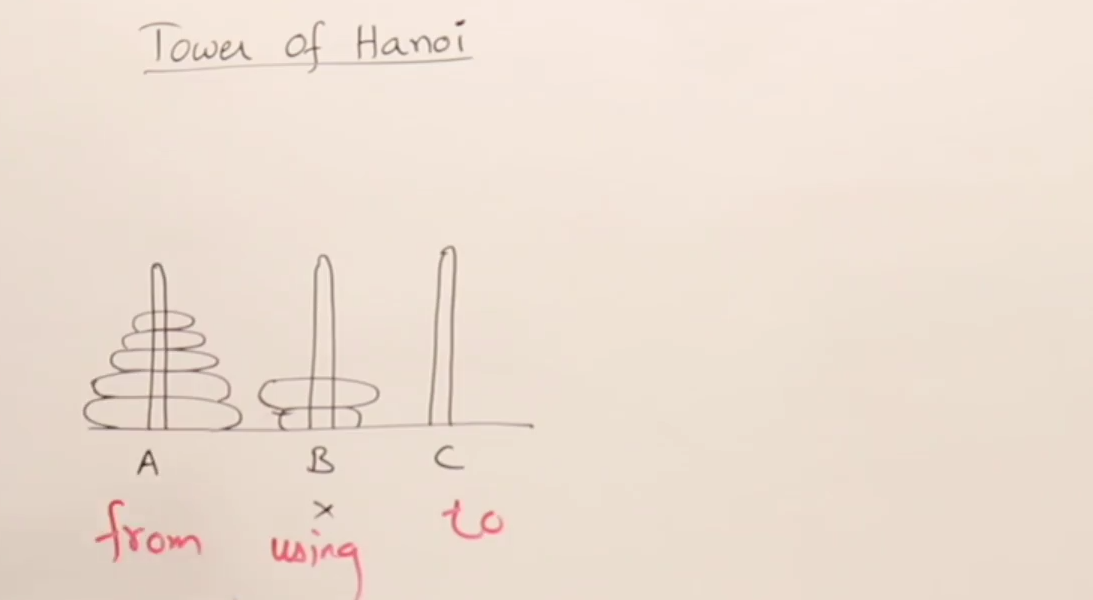 Tower of Hanoi
A B C
x
from using to